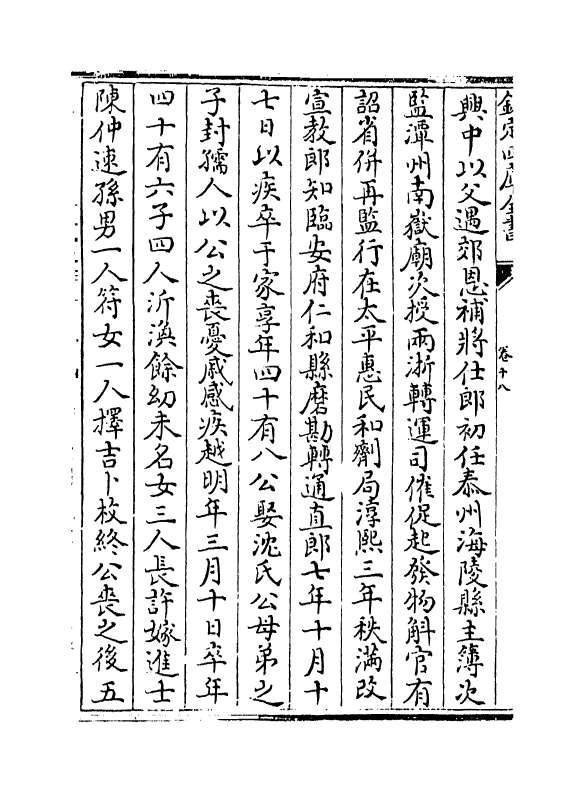 欽定四庫全書
卷十八
興中以父遇郊恩補將仕郎初任泰州海陵縣主簿次
監潭州南嶽廟次授兩浙轉運司催促起發物斛官有
詔省併再監行在太平惠民和劑局淳熙三年秩滿改
宣教郎知臨安府仁和縣磨勘轉通直郎七年十月十
七日以疾卒于家享年四十有八公娶沈氏公母弟之
子封孺人以公之喪憂戚感疾越明年三月十日卒年
四十有六子四人沂渙餘幼未名女三人長許嫁進士
陳仲速孫男一人符女一人擇吉卜枚終公喪之後五